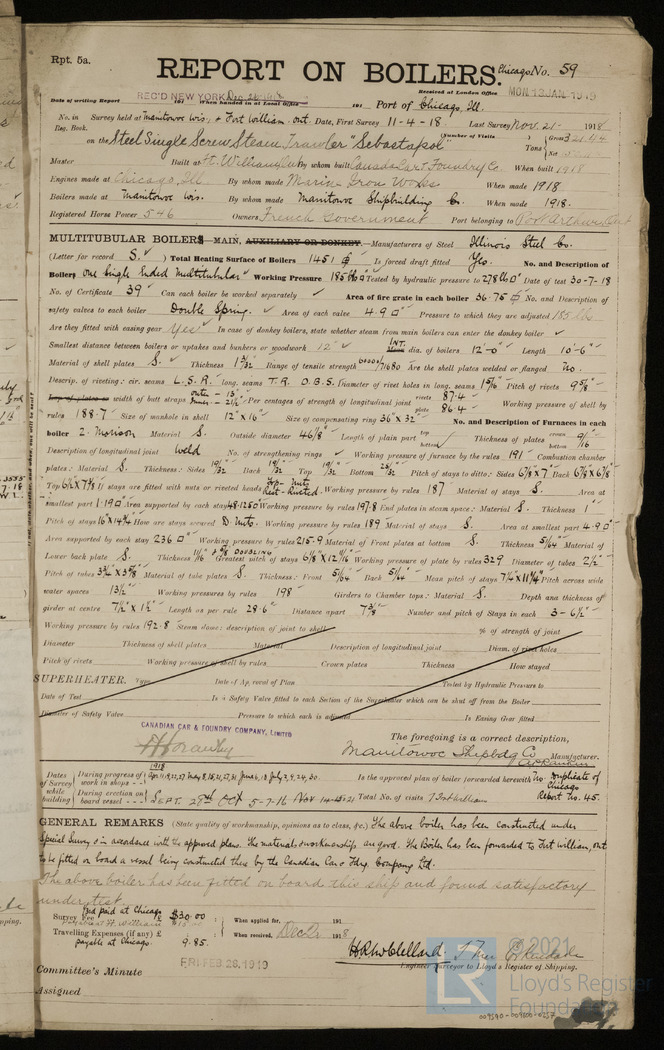 Rpt. 5a.
REPORT ON BOILERS.
Chicago No. 59
REC'D NEW YORK Dec
Received at London Office MON. 13 JAN. 1919
Date of writing Report 191 When handed in at Local Office 191 Port of Chicago, Ill.
No. in Survey held at Manitowoc Wis, & Fort William. Ont. Date, First Survey 11-4-18 Last Survey Nov. 21- 1918
Reg. Book. (Number of Visits ) Gross 321.44
on the Steel Single Screw Steam Trawler "Sebastapol" Tons Net
Master Built at Ft. William Ont By whom built Canada Car & Foundry Co. When built 1918
Engines made at Chicago, Ill By whom made Marine Iron Works When made 1918.
Boilers made at Manitowoc Wis. By whom made Manitowoc Shipbuilding Co. When made 1918.
Registered Horse Power 546 Owners French Government Port belonging to Port Arthur, Ont
MULTITUBULAR BOILERS—MAIN, AUXILIARY OR DONKEY.—Manufacturers of Steel Illinois Steel Co.
(Letter for record S.) Total Heating Surface of Boilers 1451 Is forced draft fitted Yes. No. and Description of
Boilers One Single Ended Multitubular Working Pressure 185 lb Tested by hydraulic pressure to 278 lb Date of test 30-7-18
No. of Certificate 39 Can each boiler be worked separately ✓ Area of fire grate in each boiler 36.75 No. and Description of
safety valves to each boiler Double Spring. Area of each valve 4.90" Pressure to which they are adjusted 185 lb
Are they fitted with easing gear Yes In case of donkey boilers, state whether steam from main boilers can enter the donkey boiler ✓
Smallest distance between boilers or uptakes and bunkers or woodwork 12" INT. dia. of boilers 12'-0" Length 10'-6"
Material of shell plates S. Thickness 1 3/32 Range of tensile strength 60000/71680 Are the shell plates welded or flanged No.
Descrip. of riveting: cir. seams L.S.R. long. seams T.R. D.B.S. Diameter of rivet holes in long. seams 1 5/16" Pitch of rivets 9 5/8"
Lap of plates or width of butt straps Per centages of strength of longitudinal joint rivets 87.4 plate 86.4 Working pressure of shell by
rules 188.7 Size of manhole in shell 12" x 16" Size of compensating ring 36" x 32" No. and Description of Furnaces in each
boiler 2. Morison Material S. Outside diameter 46 1/8" Length of plain part top bottom Thickness of plates crown bottom 9/16
Description of longitudinal joint Weld No. of strengthening rings ✓ Working pressure of furnace by the rules 191 Combustion chamber
plates: Material S. Thickness: Sides 19/32 Back 19/32 Top 19/32 Bottom 25/32 Pitch of stays to ditto: Sides 6 7/8 x 7" Back 6 7/8 x 6 7/8"
Top 6 1/2 x 7 7/8 If stays are fitted with nuts or riveted heads Top-Nuts Rest-Riveted. Working pressure by rules 187 Material of stays S. Area at
smallest part 1.19 Area supported by each stay 48.1250 Working pressure by rules 197.8 End plates in steam space: Material S. Thickness 1"
Pitch of stays 16" x 14 3/4 How are stays secured D. Nuts. Working pressure by rules 189 Material of stays S. Area at smallest part 4.90
Area supported by each stay 236 Working pressure by rules 215.9 Material of Front plates at bottom S. Thickness 5/64" Material of
Lower back plate S. Thickness 11/16 Greatest pitch of stays 6 7/8" x 12 11/16" Working pressure of plate by rules 329 Diameter of tubes 2 1/2"
Pitch of tubes 3 3/4" x 3 5/8" Material of tube plates S. Thickness: Front 5/64" Back 5/64" Mean pitch of stays 7 1/4 x 11 1/4" Pitch across wide
water spaces 13 1/2" Working pressures by rules 198 Girders to Chamber tops: Material S. Depth and thickness of
girder at centre 7 1/2" x 1 1/2" Length as per rule 28.6" Distance apart 7 3/8" Number and pitch of Stays in each 3 - 6 1/2"
Working pressure by rules 192.8 Steam dome: description of joint to shell % of strength of joint
Diameter Thickness of shell plates Material Description of longitudinal joint Diam. of rivet holes
Pitch of rivets Working pressure of shell by rules Crown plates Thickness How stayed
SUPERHEATER. Type Date of Approval of Plan Tested by Hydraulic Pressure to
Date of Test Is a Safety Valve fitted to each Section of the Superheater which can be shut off from the Boiler
Diameter of Safety Valve Pressure to which each is adjusted Is Easing Gear fitted
CANADIAN CAR & FOUNDRY COMPANY, LIMITED
The foregoing is a correct description,
Manitowoc Shipbdg Co Manufacturer.
Dates of Survey while building
During progress of work in shops - - 1918
During erection on board vessel - - - SEPT. 27th OCT 5-7-16 NOV Total No. of visits 7 Fort William
In the approved plan of boiler forwarded herewith No. Duplicate of Chicago Report No. 45.
GENERAL REMARKS (State quality of workmanship, opinions as to class, &c.) The above boiler has been constructed under
Special Survey & in accordance with the approved plans. The material & workmanship are good. The Boiler has been forwarded to Fort William, Ont
to be fitted on board a vessel being constructed there by the Canadian Car & Fdry. Company Ltd.
The above boiler has been fitted on board this ship and found satisfactory
under test.
Survey Fee paid at Chicago $30.00 When applied for, 191
Travelling Expenses (if any) £ payable at Chicago. 9.85. When received, Dec 2 1918
Engineer Surveyor to Lloyd's Register of Shipping.
FRI. FEB 28. 1919
Committee's Minute
Assigned
© 2021
LR
Lloyd's Register
Foundation
009590-009600-0257